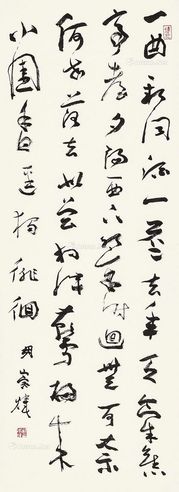 一曲新词酒一杯去年天气旧亭
台夕阳西下几时回无可奈
何花落去似曾相识燕归来
小园香径独徘徊 明崇